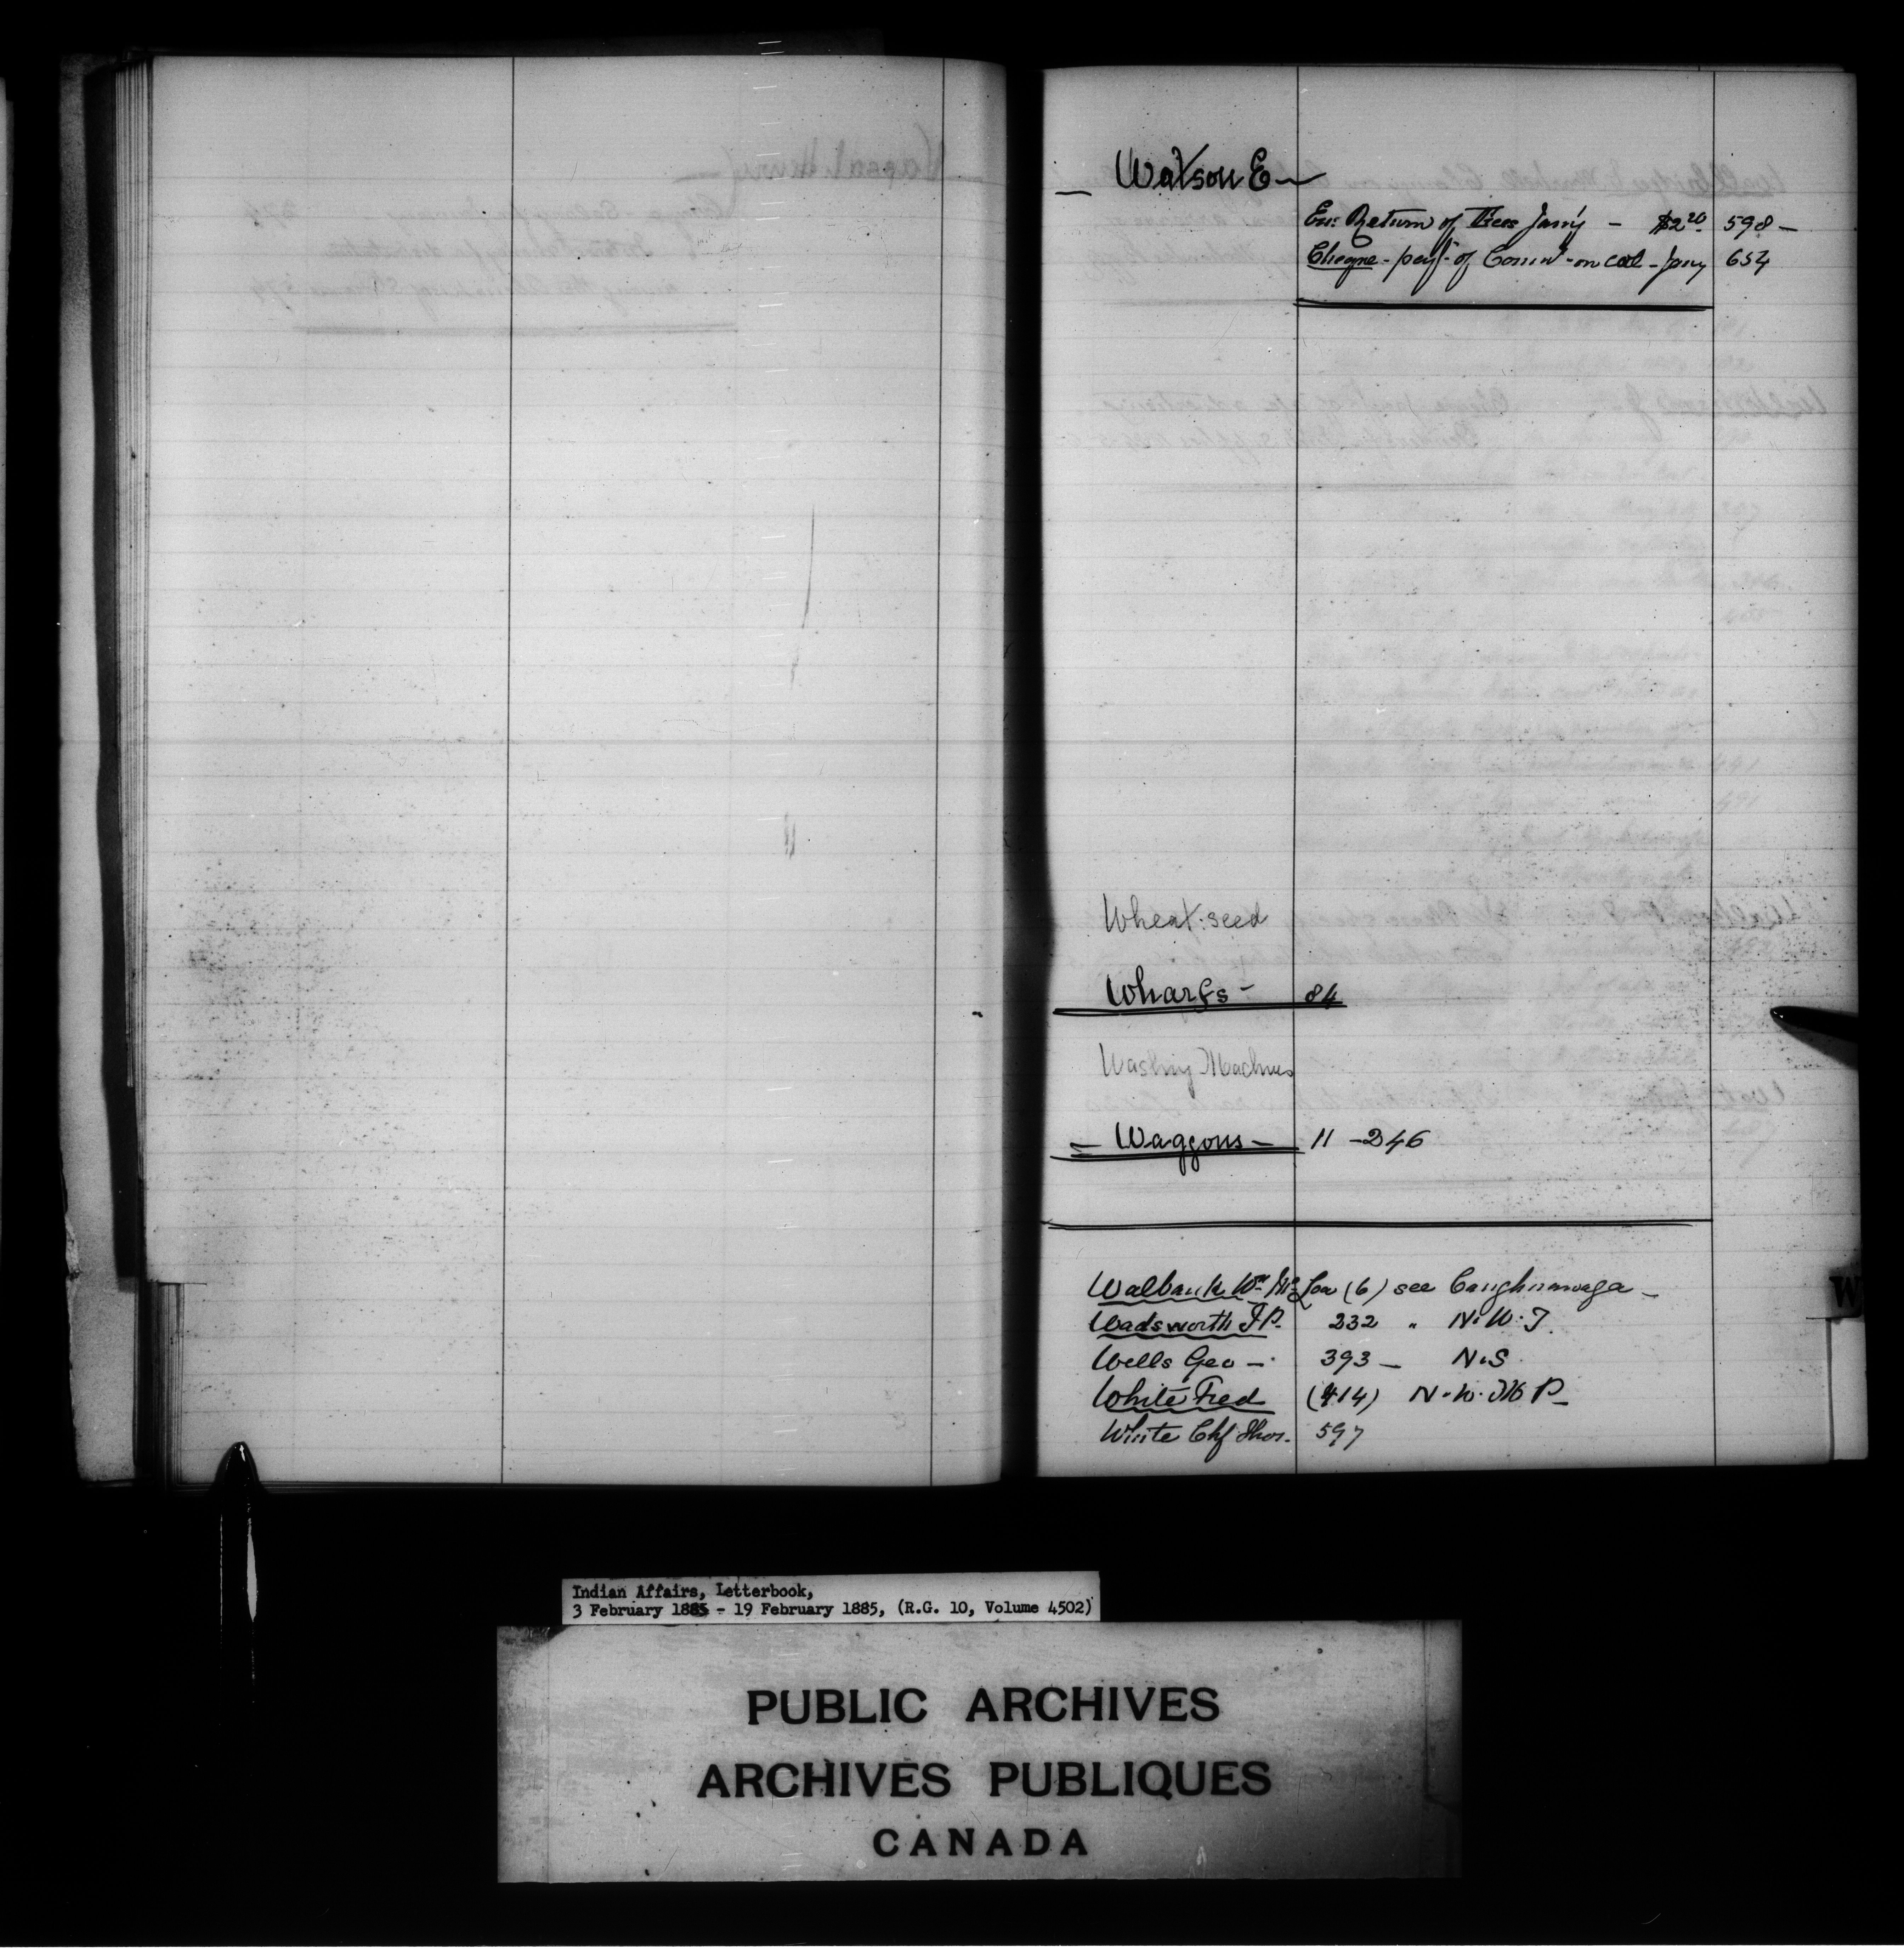 Watson E —
Enc: Return of Fees Jany — $2.20 598 —
Cheque - payt of Comn - on col - Jany 654
Wheat: seed
Wharfs — 84
Washing Machines
— Waggons — 11 - 246
Walbank Wm McLea (6) see Caughnawaga —
Wadsworth T P. 232 " N. W. T.
Wells Geo — 393 — N. S.
White Fred (414) N. W. M P —
White Chf Thos. 597
W
Indian Affairs, Letterbook,
3 February 1885 - 19 February 1885, (R.G. 10, Volume 4502)
PUBLIC ARCHIVES
ARCHIVES PUBLIQUES
CANADA